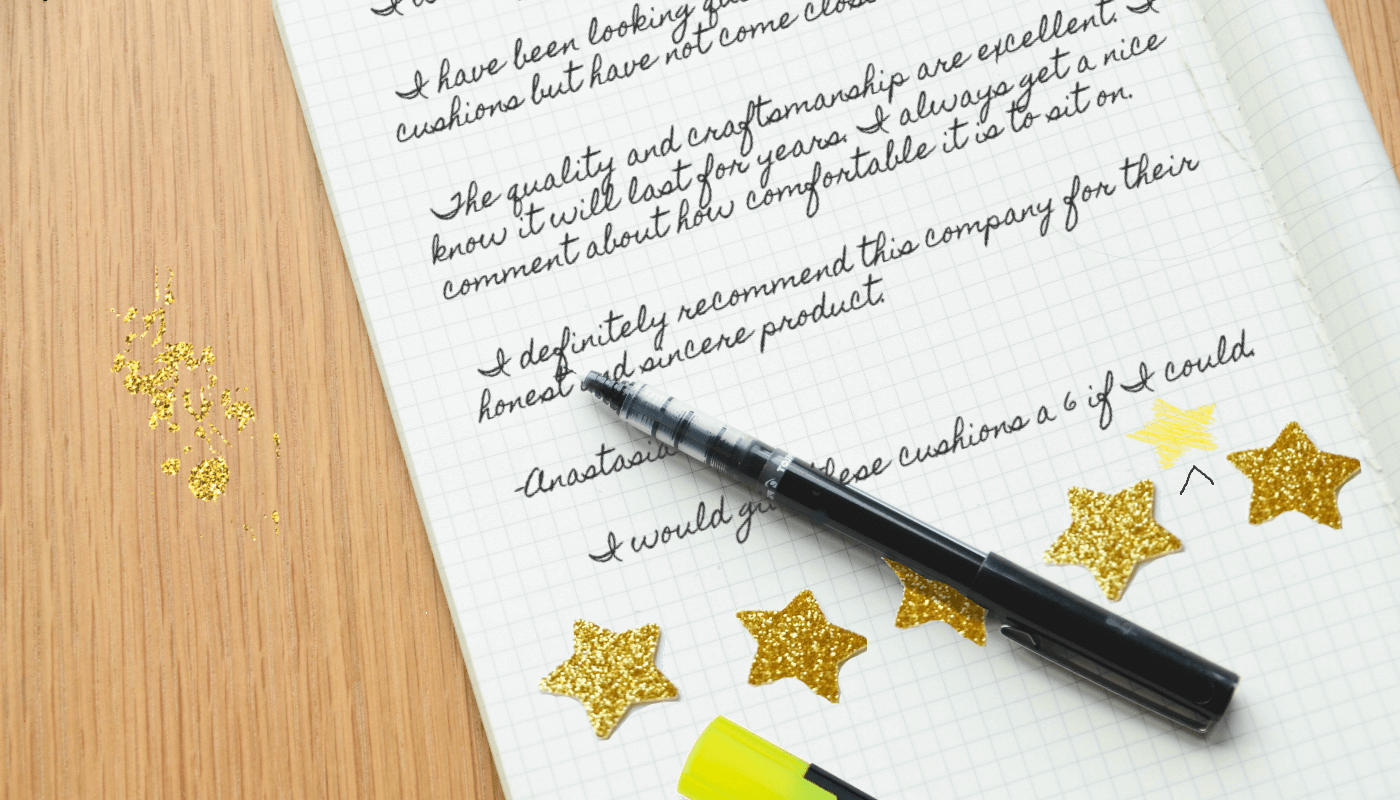 I have been looking
cushions but have not come close
The quality and craftsmanship are excellent. I
know it will last for years. I always get a nice
comment about how comfortable it is to sit on.
I definitely recommend this company for their
honest and sincere product.
-Anastasia
I would these cushions a 6 if I could.